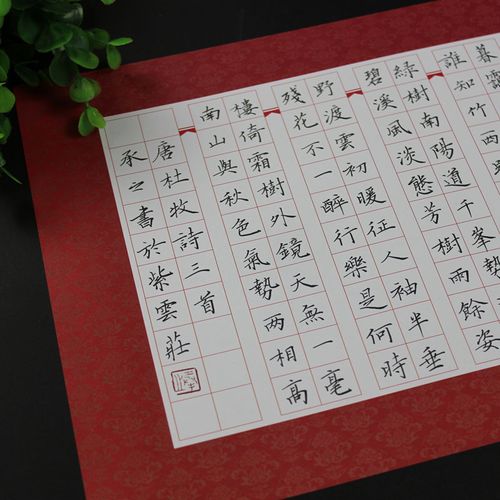 暮靄
誰知竹西
綠樹南陽道千峯勢
碧溪風淡態芳樹雨餘姿
野渡雲初暖征人袖半垂
残花不一醉行樂是何時
樓倚霜樹外鏡天無一毫
南山與秋色氣勢两相高
唐杜牧詩三首
承之書於紫雲莊